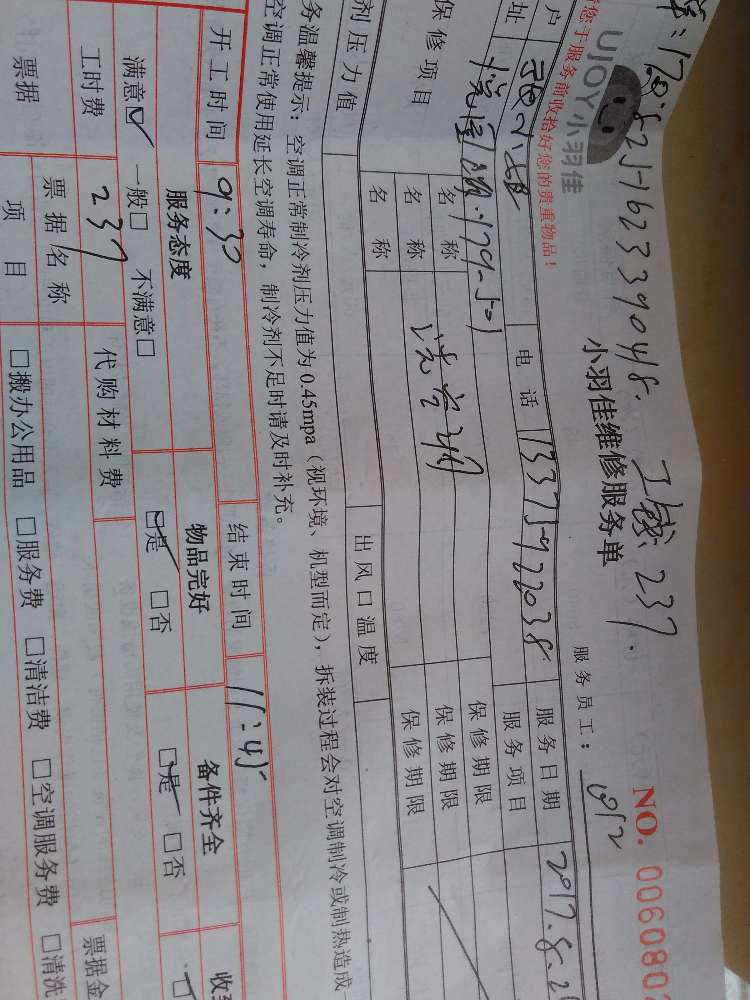 UJOY小羽佳
小羽佳维修服务单
NO. 0060802
服务员工:
您于服务前收拾好您的贵重物品!
户
电话 13375922038
服务日期 2017.8.2
址
179-501
服务项目
保修项目
名称
保修期限
名称
洗空调
保修期限
名称
保修期限
剂压力值
出风口温度
务温馨提示:空调正常制冷剂压力值为0.45mpa(视环境、机型而定),拆装过程会对空调制冷或制热造成
空调正常使用延长空调寿命,制冷剂不足时请及时补充。
开工时间 9:30
结束时间 11:45
服务态度
物品完好
备件齐全
满意☑ 一般□ 不满意□
☑是 □否
☑是 □否
工时费 237
代购材料费
票据
票据名称
票据金
项目
□搬办公用品 □服务费 □清洁费 □空调服务费 □清洗